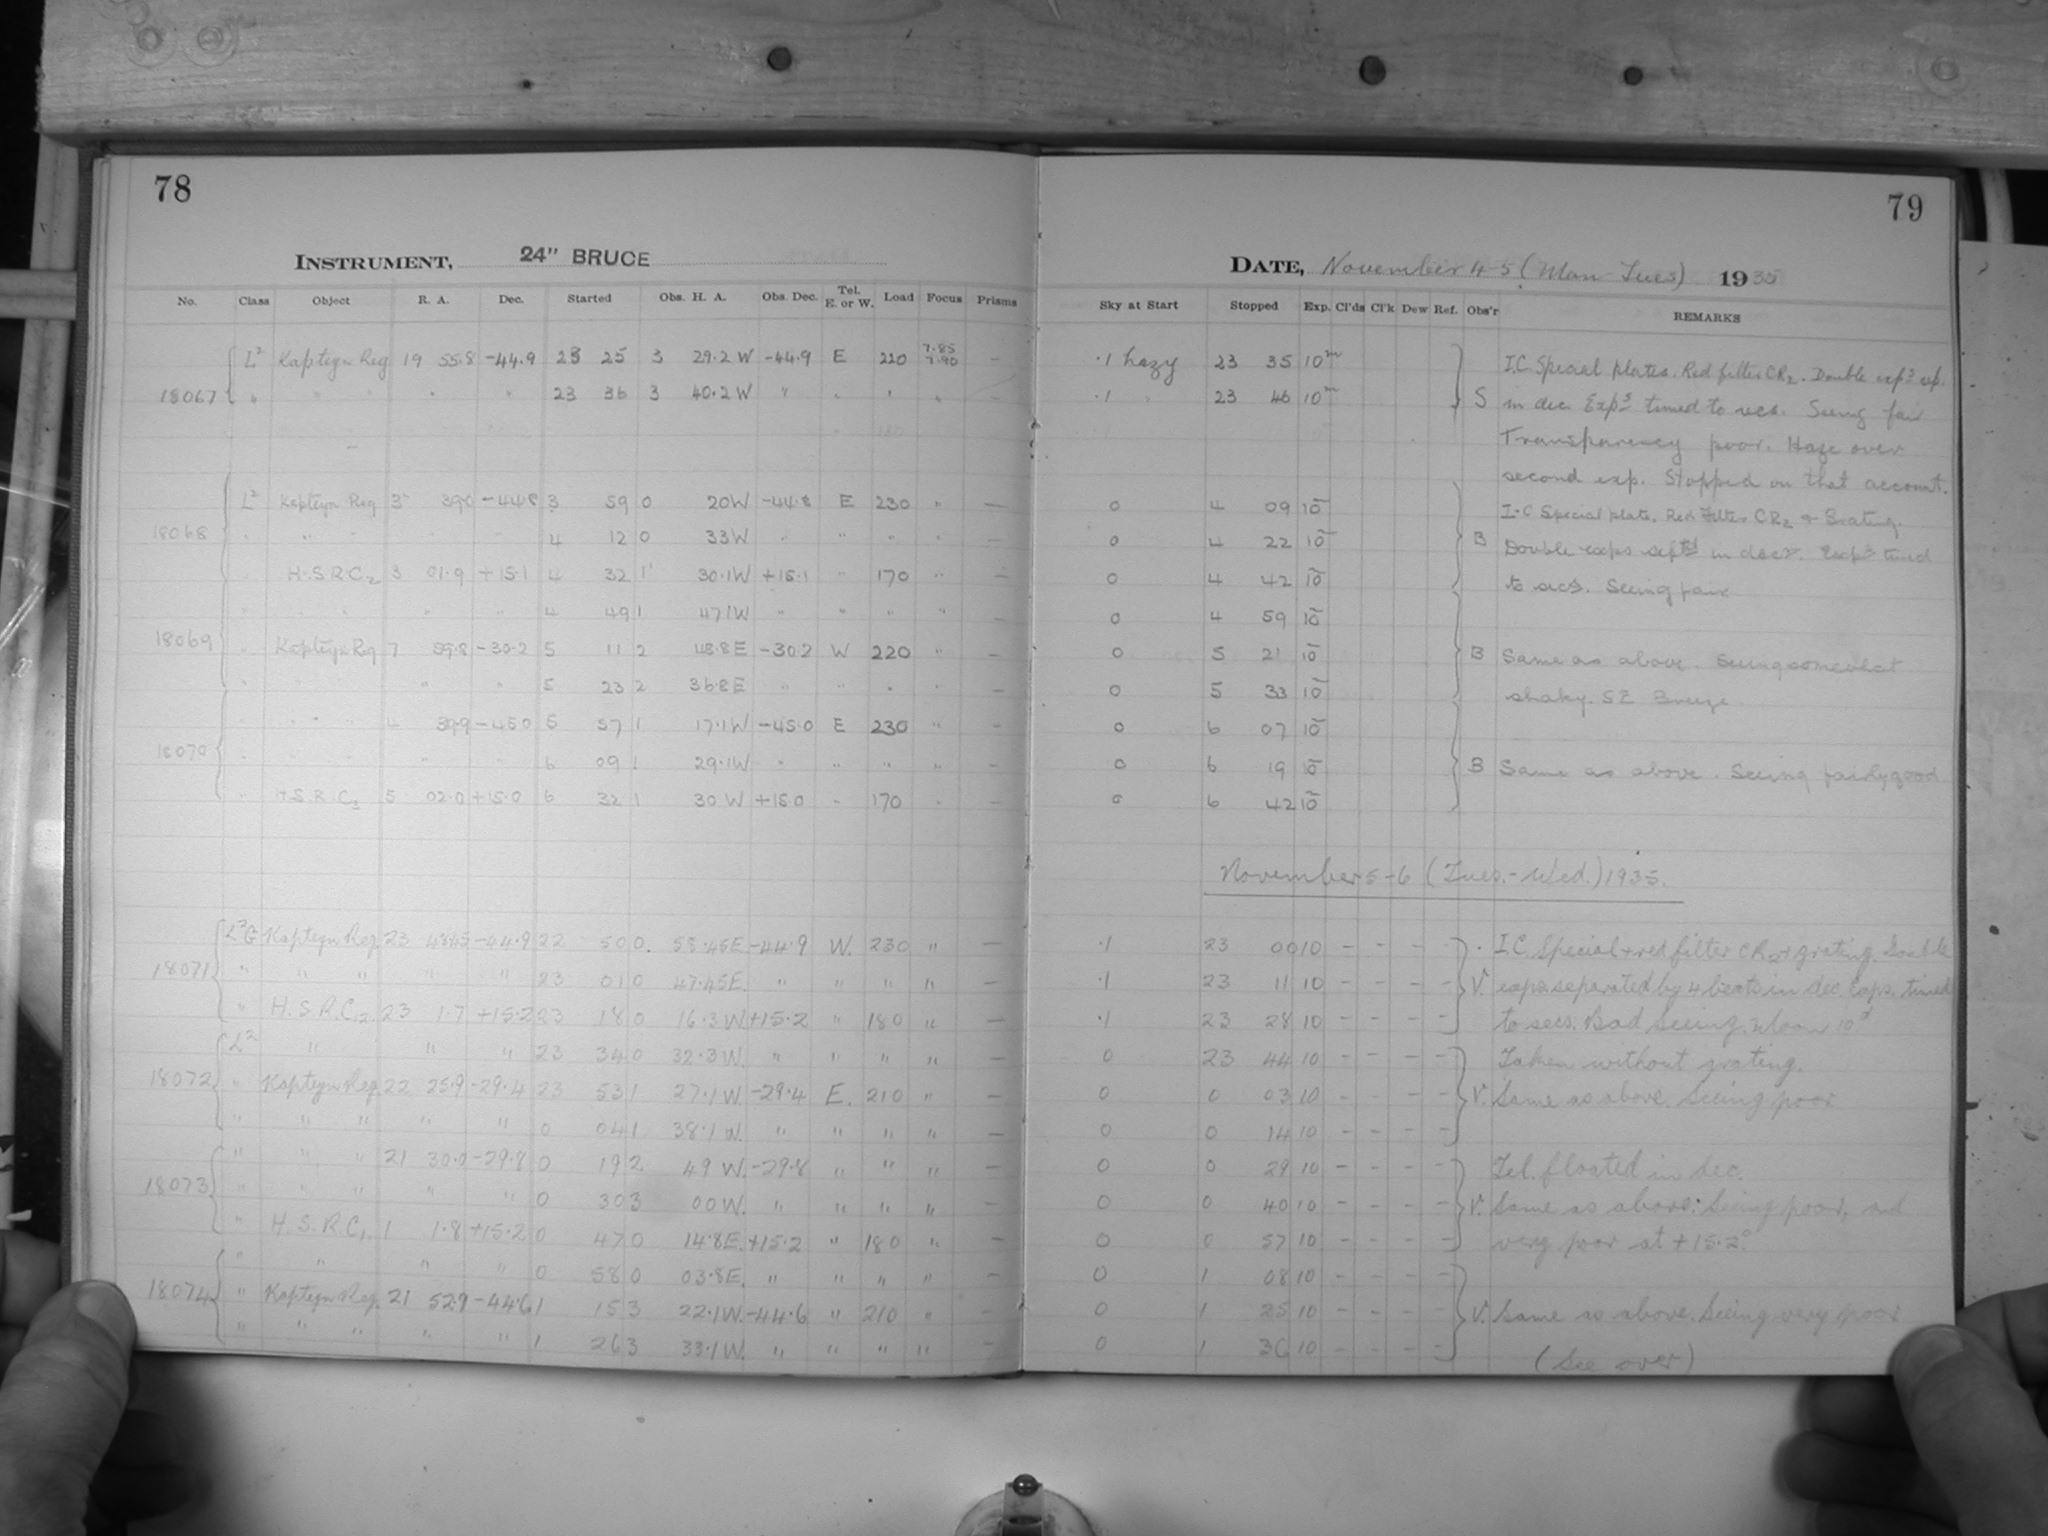 78
INSTRUMENT, 24" BRUCE
No. Class Object R. A. Dec. Started Obs. H. A. Obs. Dec. Tel. E. or W. Load Focus Prisms
L² Kapteyn Reg 19 55.8 -44.9 23 25 3 29.2 W -44.9 E 220 7.85 7.90 -
18067 " " " " " 23 36 3 40.2 W " " " " -
L² Kapteyn Reg 3 -44.8 3 59 0 20W -44.8 E 230 " -
18068 " " " 4 12 0 33W " " " " -
H.S.R.C₂ 3 01.9 +15.1 4 32 1 30.1W +15.1 " 170 " -
" " " " 4 49 1 47.1W " " " " -
18069 " Kapteyn Reg 7 -30.2 5 11 2 48.8E -30.2 W 220 " -
" " " 5 23 2 36.8E " " " " -
" " " 4 39.9 -45.0 5 57 1 17.1W -45.0 E 230 " -
18070 " " " " 6 09 1 29.1W " " " " -
" H.S.R.C₃ 5 02.0 +15.0 6 32 1 30 W +15.0 " 170 " -
L²G Kapteyn Reg. 23 48.45 -44.9 22 50 0. 58.45E -44.9 W. 230 " -
18071 " " " " " 23 01 0 47.45E. " " " " -
" H.S.R.C.₂ 23 1.7 +15.2 23 18 0 16.3W +15.2 " 180 " -
L² " " " 23 34 0 32.3W. " " " " -
18072 " Kapteyn Reg. 22 25.9 -29.4 23 53 1 27.1W. -29.4 E. 210 " -
" " " " " 0 04 1 38.1W. " " " " -
" " " 21 30.0 -29.8 0 19 2 49 W. -29.8 " " " -
18073 " " " " " 0 30 3 00W. " " " " -
" H.S.R.C₁. 1 1.8 +15.2 0 47 0 14.8E. +15.2 " 180 " -
" " " " 0 58 0 03.8E. " " " " -
18074 " Kapteyn Reg. 21 52.9 -44.6 1 15 3 22.1W. -44.6 " 210 " -
" " " " " 1 26 3 33.1W. " " " " -
79
DATE, November 4-5 (Mon-Tues) 1935
Sky at Start Stopped Exp. Cl'ds Cl'k Dew Ref. Obs'r REMARKS
.1 hazy 23 35 10ᵐ I.C. Special plates. Red filter CR₂. Double expˢ sep.
.1 " 23 46 10ᵐ S in dec. Expˢ timed to secs. Seeing fair
Transparency poor. Haze over
second exp. Stopped on that account.
0 4 09 10 I-C Special plate. Red Filter CR₂ & Grating.
0 4 22 10 B Double exps septd in dec. Exps timed
0 4 42 10 to secs. Seeing fair
0 4 59 10
0 5 21 10 B Same as above. Seeing somewhat
0 5 33 10 shaky. SE Breeze
0 6 07 10
0 6 19 10 B Same as above. Seeing fairly good
0 6 42 10
November 5-6 (Tues.-Wed.) 1935.
.1 23 00 10 - - - - . I.C. Special + red filter CR₂ + grating. Double
.1 23 11 10 - - - - V. exps. separated by 4 beats in dec. Exps. timed
.1 23 28 10 - - - - to secs. Bad seeing. Moon 10ᵈ
0 23 44 10 - - - - Taken without grating.
0 0 03 10 - - - - V. Same as above. Seeing poor
0 0 14 10 - - - -
0 0 29 10 - - - - Tel. floated in dec.
0 0 40 10 - - - - V. Same as above; Seeing poor, and
0 0 57 10 - - - - very poor at +15.2°
0 1 08 10 - - - -
0 1 25 10 - - - - V. Same as above. Seeing very poor
0 1 36 10 - - - - (See over)